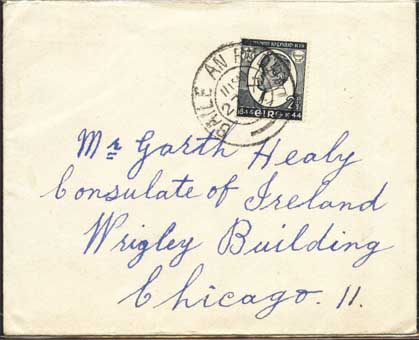 BAILE AN
2½
1844 eire 44
Mr Garth Healy
Consulate of Ireland
Wrigley Building
Chicago. 11.